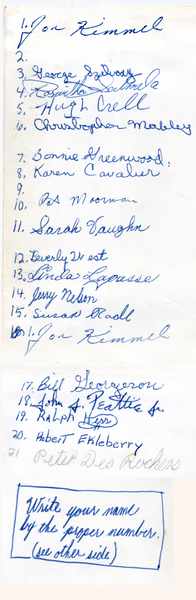 1. Jon Kimmel
2.
3. George
4.
5. Hugh
6. Christopher Mobley
7. Bonnie Greenwood
8. Karen Cavalier
9.
10. Pat Moorman
11. Sarah Vaughn
12. Beverly
13. Linda Lapasse
14. Jerry Nelson
15. Susan
1. Jon Kimmel
17. Bill Georgeron
18. John J. Peattie Jr.
19. Ralph Hiss
20. Robert Ekleberry
21 Peter Des Rochers
Write your name
by the proper number.
(see other side)